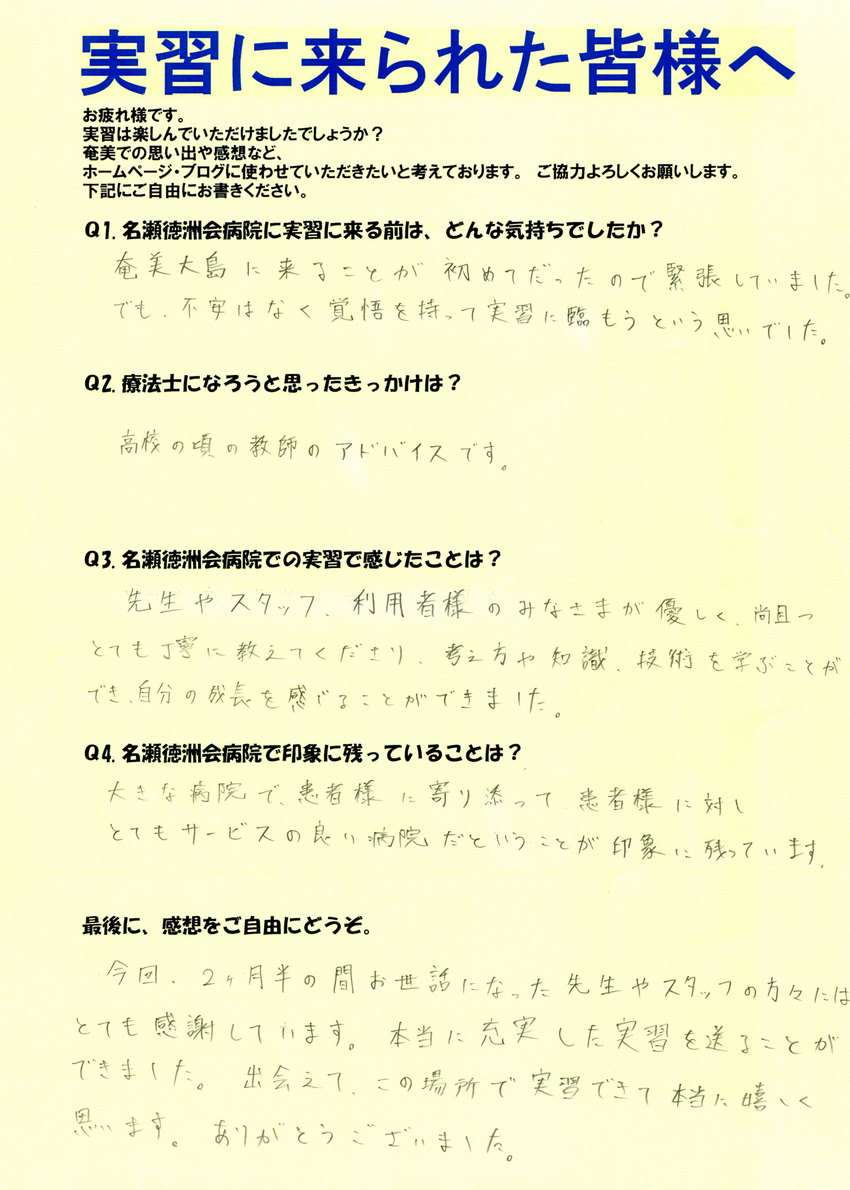 実習に来られた皆様へ
お疲れ様です。
実習は楽しんでいただけましたでしょうか？
奄美での思い出や感想など、
ホームページ・ブログに使わせていただきたいと考えております。 ご協力よろしくお願いします。
下記にご自由にお書きください。
Q1. 名瀬徳洲会病院に実習に来る前は、どんな気持ちでしたか？
奄美大島に来ることが初めてだったので緊張していました。
でも、不安はなく覚悟を持って実習に臨もうという思いでした。
Q2. 療法士になろうと思ったきっかけは？
高校の頃の教師のアドバイスです。
Q3. 名瀬徳洲会病院での実習で感じたことは？
先生やスタッフ、利用者様のみなさまが優しく、尚且つ
とても丁寧に教えてくださり、考え方や知識、技術を学ぶことが
でき、自分の成長を感じることができました。
Q4. 名瀬徳洲会病院で印象に残っていることは？
大きな病院で、患者様に寄り添って患者様に対し
とてもサービスの良い病院だということが印象に残っています。
最後に、感想をご自由にどうぞ。
今回、2ヶ月半の間お世話になった先生やスタッフの方々には
とても感謝しています。本当に充実した実習を送ることが
できました。出会えて、この場所で実習できて本当に嬉しく
思います。ありがとうございました。